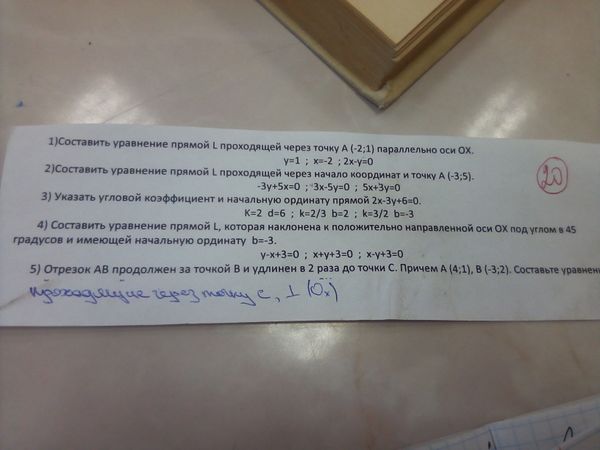 1)Составить уравнение прямой L проходящей через точку A (-2;1) параллельно оси OX.
y=1 ; x=-2 ; 2x-y=0
20
2)Составить уравнение прямой L проходящей через начало координат и точку A (-3;5).
-3y+5x=0 ; 3x-5y=0 ; 5x+3y=0
3) Указать угловой коэффициент и начальную ординату прямой 2x-3y+6=0.
K=2 d=6 ; k=2/3 b=2 ; k=3/2 b=-3
4) Составить уравнение прямой L, которая наклонена к положительно направленной оси OX под углом в 45
градусов и имеющей начальную ординату b=-3.
y-x+3=0 ; x+y+3=0 ; x-y+3=0
5) Отрезок AB продолжен за точкой B и удлинен в 2 раза до точки C. Причем A (4;1), B (-3;2). Составьте уравнени
проходящие через точку C, ⊥ (Ox)